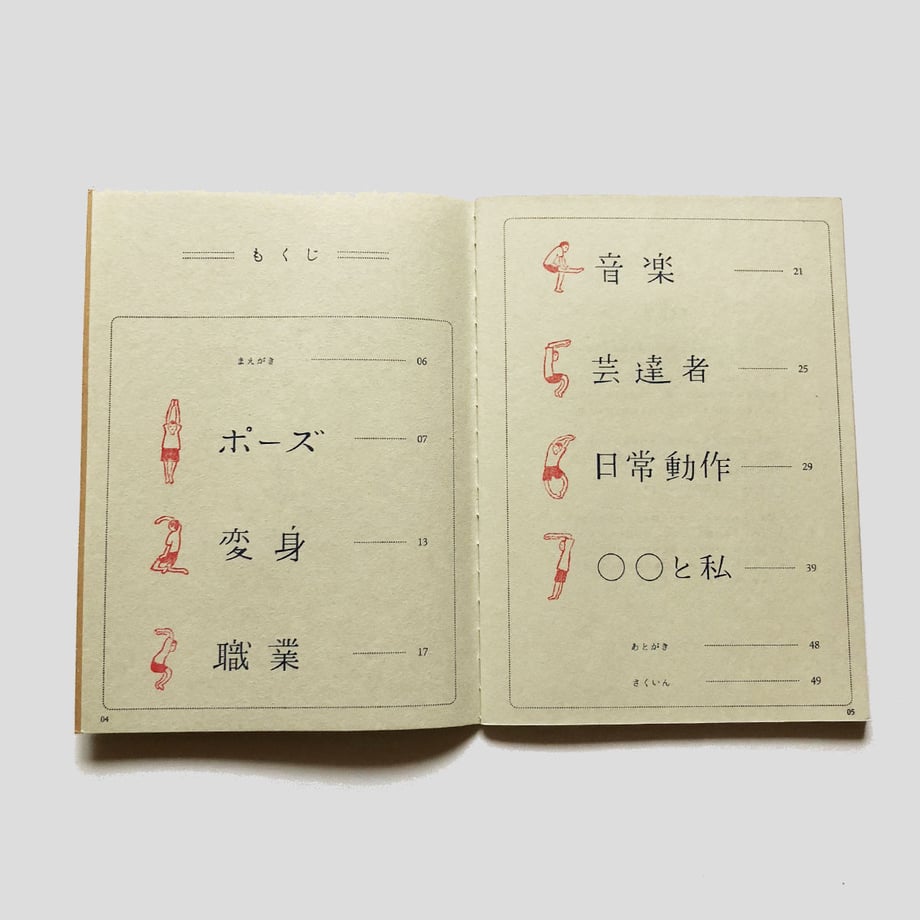 もくじ
まえがき 06
ポーズ 07
変身 13
職業 17
04
音楽 21
芸達者 25
日常動作 29
〇〇と私 39
あとがき 48
さくいん 49
05